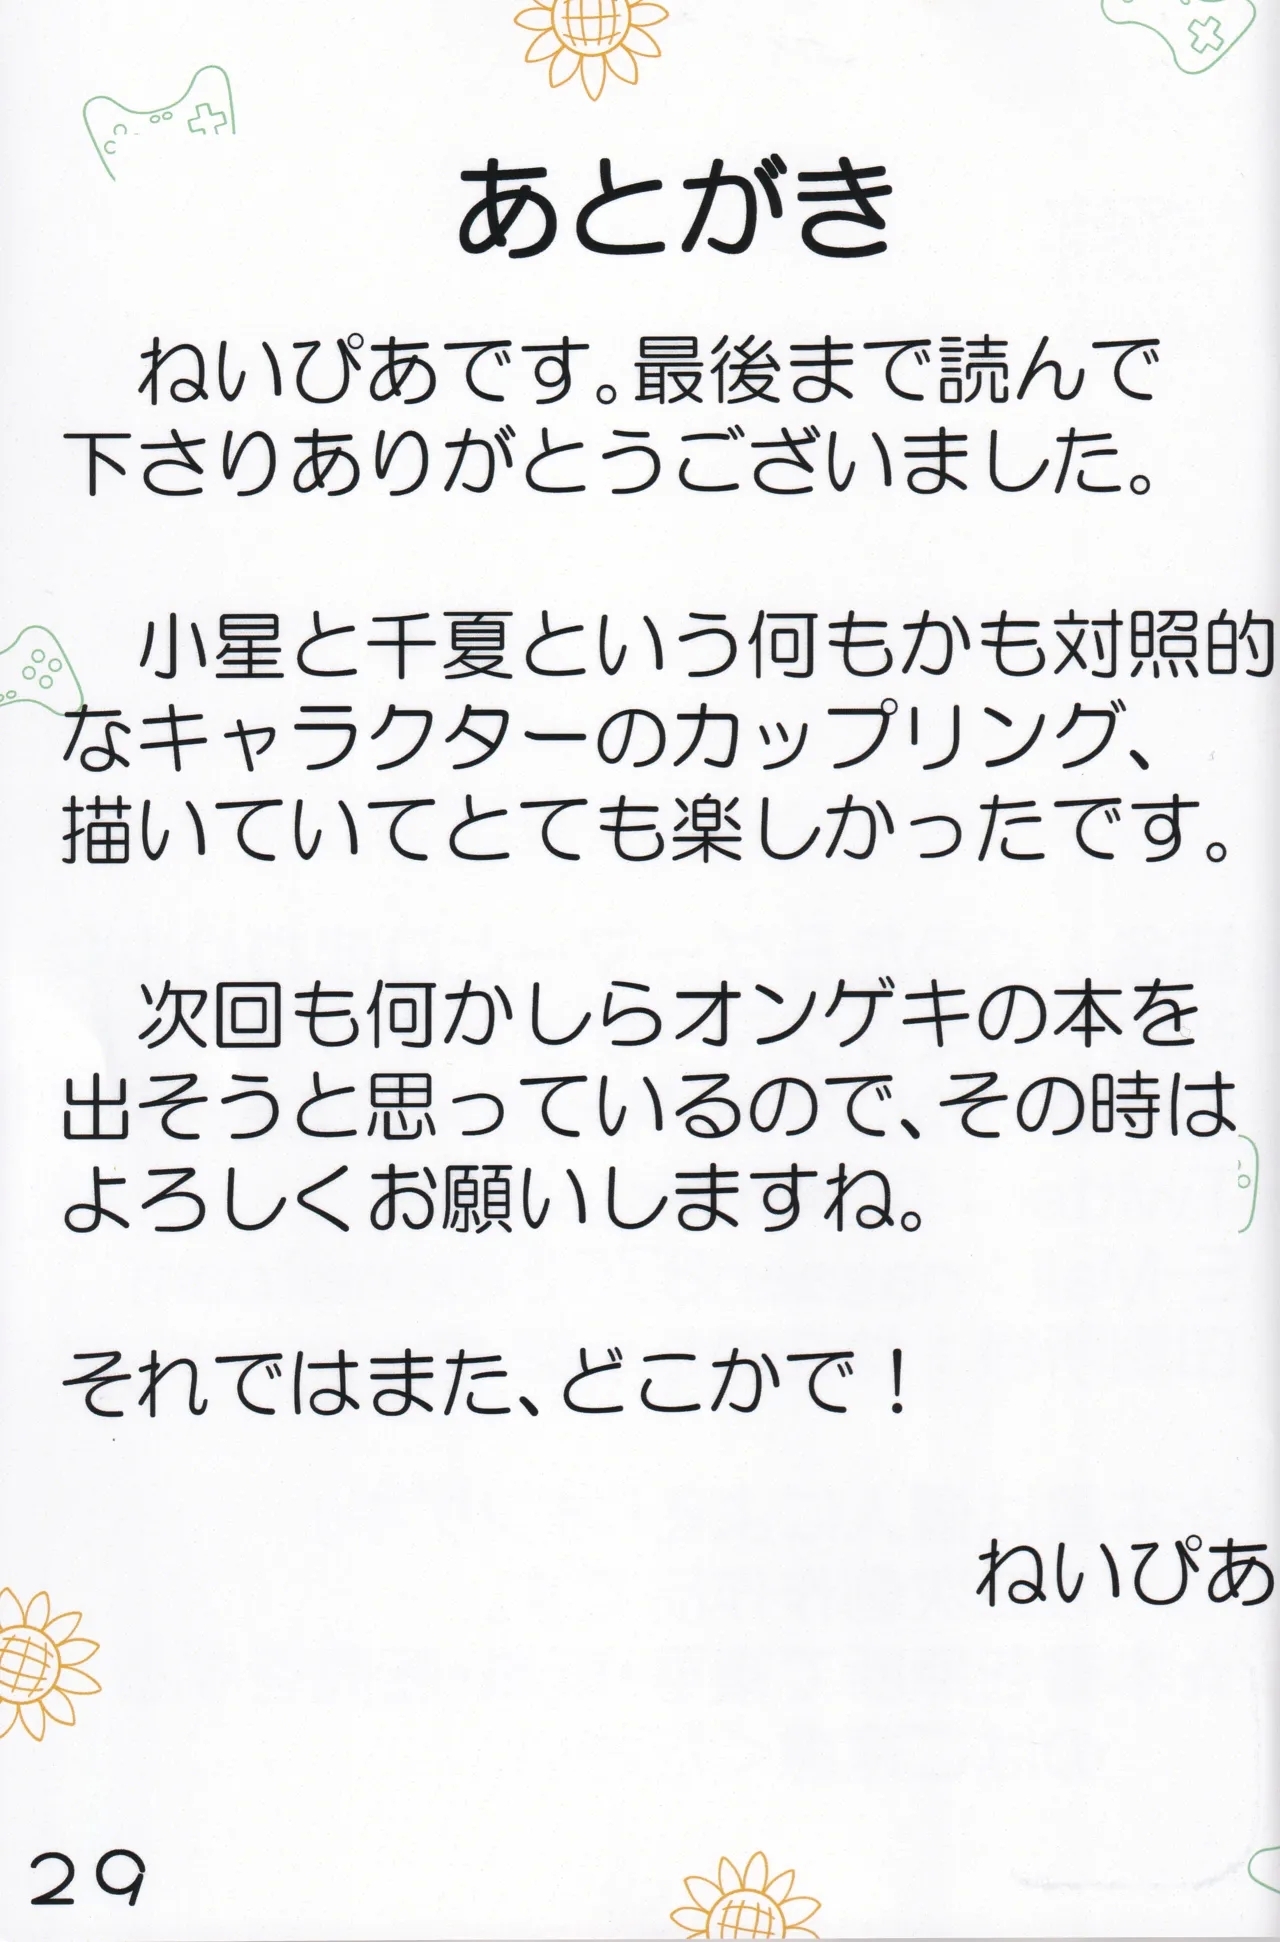 あとがき
ねいぴあです。最後まで読んで
下さりありがとうございました。
小星と千夏という何もかも対照的
なキャラクターのカップリング、
描いていてとても楽しかったです。
次回も何かしらオンゲキの本を
出そうと思っているので、その時は
よろしくお願いしますね。
それではまた、どこかで！
ねいぴあ
29